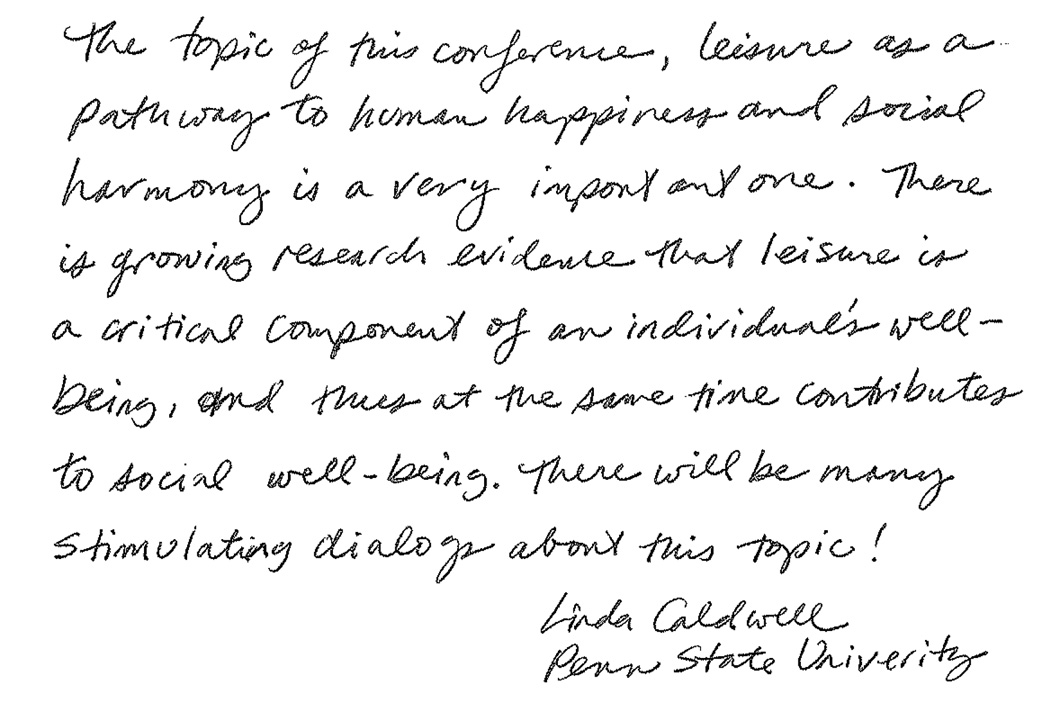 The topic of this conference, leisure as a
pathway to human happiness and social
harmony is a very important one. There
is growing research evidence that leisure is
a critical component of an individual's well-
being, and thus at the same time contributes
to social well-being. There will be many
stimulating dialogs about this topic!
Linda Caldwell
Penn State Univerity